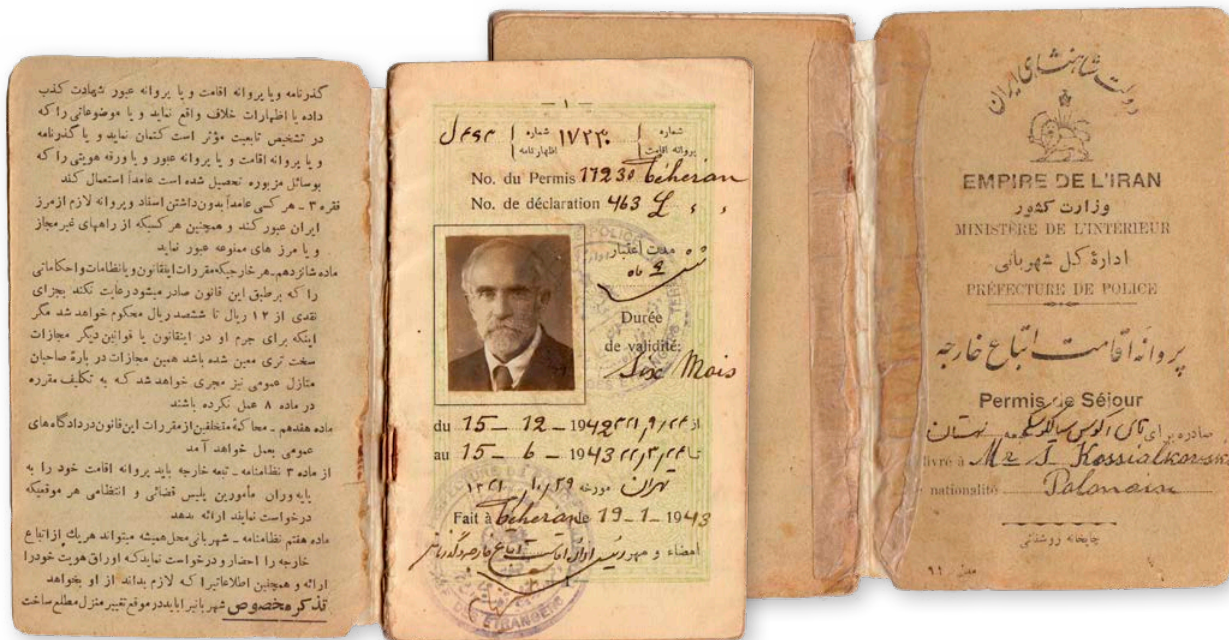 گذرنامه ویا پروانه اقامت و یا پروانه عبور شهادت کذب
داده یا اظهارات خلاف واقع نماید و یا موضوعاتی را که
در تشخیص تابعیت مؤثر است کتمان نماید و یا گذرنامه
و یا پروانه اقامت و یا پروانه عبور و یا ورقه هویتی را که
بوسائل مزبوره تحصیل شده است عامداً استعمال کند
فقره ۳ ـ هر کسی عامداً بدون داشتن اسناد و پروانه لازم از مرز
ایران عبور کند و همچنین هر کسیکه از راههای غیر مجاز
و یا مرز های ممنوعه عبور نماید
ماده شانزدهم ـ هر خارجیکه مقررات اینقانون و یا نظامات و احکاماتی
را که بر طبق این قانون صادر میشود رعایت نکند بجزای
نقدی از ۱۲ ریال تا ششصد ریال محکوم خواهد شد مگر
اینکه برای جرم او در اینقانون یا قوانین دیگر مجازات
سخت تری معین شده باشد همین مجازات در بارۀ صاحبان
منازل عمومی نیز مجری خواهد شد که به تکلیف مقرره
در ماده ۸ عمل نکرده باشند
ماده هفدهم ـ محاکمۀ متخلفین از مقررات این قانون در دادگاه های
عمومی بعمل خواهد آمد
از ماده ۳ نظامنامه ـ تبعه خارجه باید پروانه اقامت خود را به
پایه وران مأمورین پلیس قضائی و انتظامی هر موقعیکه
درخواست نمایند ارائه بدهد
ماده هفتم نظامنامه ـ شهربانی محل همیشه میتواند هر یك از اتباع
خارجه را احضار و درخواست نماید که اوراق هویت خود را
ارائه و همچنین اطلاعاتیرا که لازم بداند از او بخواهد
تذکر مخصوص شهربانیرا باید در موقع تغییر منزل مطلع ساخت
— ۱ —
شماره پروانه اقامت ۱۷۲۳۰ شماره اظهارنامه
No. du Permis 17230 Téhéran
No. de déclaration 463
مدت اعتبار
شش ماه
Durée
de validité:
Six Mois
du 15 – 12 – 1942 از
au 15 – 6 – 1943 تا
تهران مورخه
Fait à Téhéran le 19 – 1 – 1943
امضاء و مهر
دولت شاهنشاهی ایران
EMPIRE DE L'IRAN
وزارت کشور
MINISTÈRE DE L'INTERIEUR
ادارۀ کل شهربانی
PRÉFECTURE DE POLICE
پروانه اقامت اتباع خارجه
Permis de Séjour
صادره برای
livré à Mr
nationalité Polonaise
چاپخانه روشنائی